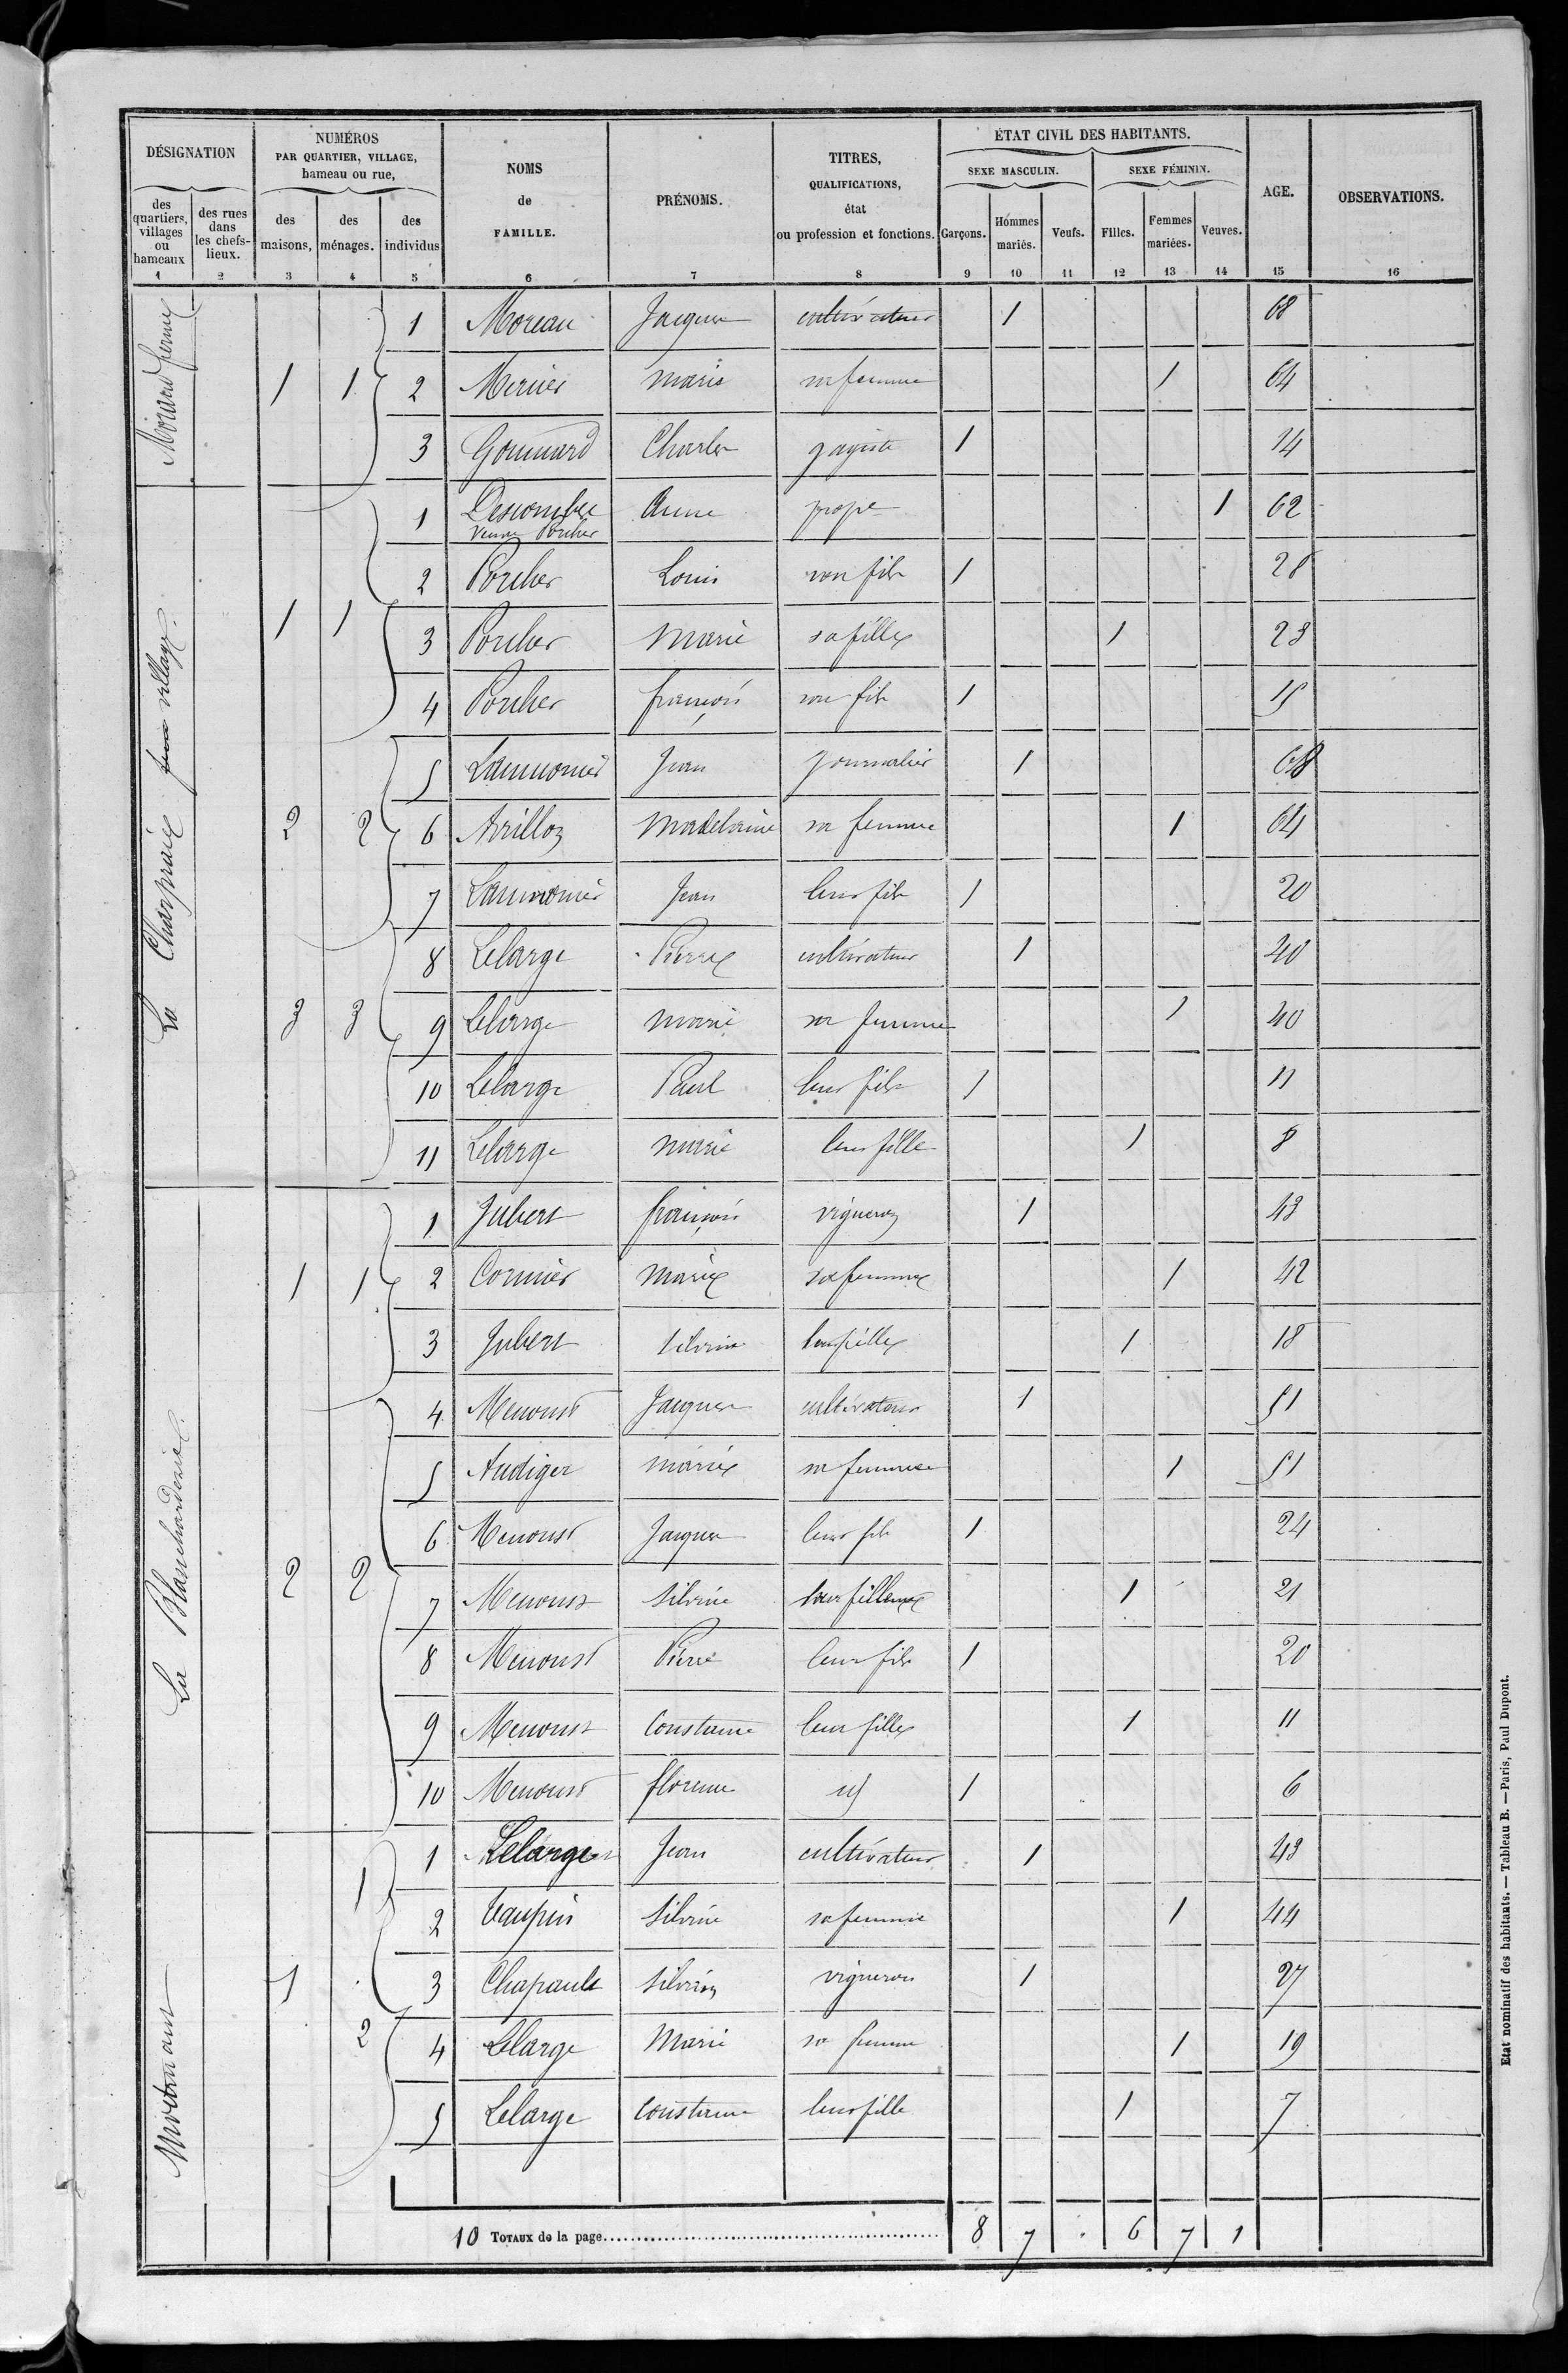 DÉSIGNATION
NUMÉROS
PAR QUARTIER, VILLAGE,
hameau ou rue,
NOMS
de
FAMILLE.
PRÉNOMS.
TITRES,
QUALIFICATIONS,
état
ou profession et fonctions.
ÉTAT CIVIL DES HABITANTS.
SEXE MASCULIN.
SEXE FÉMININ.
AGE.
OBSERVATIONS.
des quartiers, villages ou hameaux
des rues dans les chefs-lieux.
des maisons,
des ménages.
des individus
Garçons.
Hommes mariés.
Veufs.
Filles.
Femmes mariées.
Veuves.
1 2 3 4 5 6 7 8 9 10 11 12 13 14 15 16
1 Moreau Jacques cultivateur 1 68
1 1 2 Mercier Marie sa femme 1 64
3 Gounard Charles gagiste 1 14
1 Descombe Anne prope 1 62
veuve Porcher
2 Porcher Louis son fils 1 28
1 1 3 Porcher Marie sa fille 1 23
4 Porcher françois son fils 1 15
5 Laumonier Jean Journalier 1 68
2 2 6 Avrillon Madelaine sa femme 1 64
7 Laumonier Jean leur fils 1 20
8 Lelarge Pierre cultivateur 1 40
3 3 9 Lelarge Marie sa femme 1 40
10 Lelarge Paul leur fils 1 11
11 Lelarge Marie leur fille 1 8
1 Jubert françois vigneron 1 43
1 1 2 Cormier Marie sa femme 1 42
3 Jubert Silvine leur fille 1 18
4 Menoust Jacques cultivateur 1 51
5 Audiger Marie sa femme 1 51
6 Menoust Jacques leur fils 1 24
2 2 7 Menoust Silvine leur fille 1 21
8 Menoust Pierre leur fils 1 20
9 Menoust Constance leur fille 1 11
10 Menoust florence id 1 6
1 1 Lelarge Jean cultivateur 1 43
2 Taupin Silvine sa femme 1 44
1 3 Chapault Silvain vigneron 1 27
2 4 Lelarge Marie sa femme 1 19
5 Lelarge Constance leur fille 1 7
La Blancharderie
La Charpraie village
ferme
10 TOTAUX de la page 8 7 . 6 7 1
Etat nominatif des habitants. — Tableau B. — Paris, Paul Dupont.